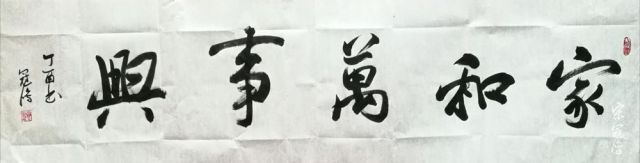 家和萬事興
丁酉 书